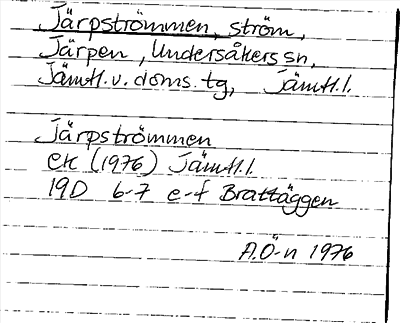 Järpströmmen, ström,
Järpen, Undersåkers sn,
Jämtl. v. doms. tg, Jämtl. l.
Järpströmmen
ek (1976) Jämtl. l.
19D 6-7 e-f Brattäggen
A.Ö-n 1976